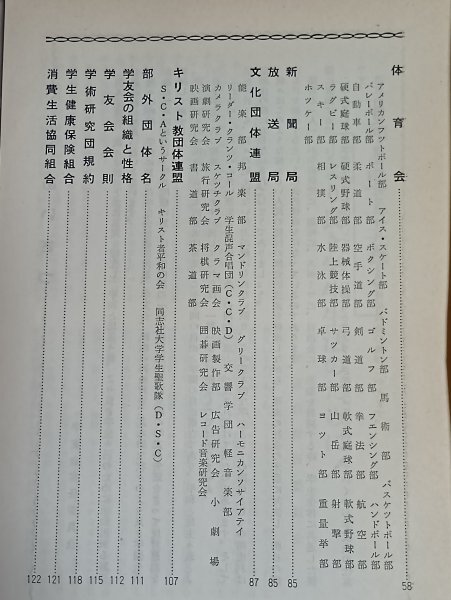 体育会 58
アメリカンフットボール部 アイス・スケート部 バドミントン部 馬術部 バスケットボール部
バレーボール部 ボート部 ボクシング部 ゴルフ部 フエンシング部 ハンドボール部
自動車部 柔道部 空手道部 剣道部 拳法部 航空部
硬式庭球部 硬式野球部 器械体操部 弓道部 軟式庭球部 軟式野球部
ラグビー部 レスリング部 陸上競技部 サッカー部 山岳部 射撃部
スキー部 相撲部 水泳部 卓球部 ヨット部 重量挙部
ホッケー部
新聞局 85
放送局 85
文化団体連盟 87
能楽部 邦楽部 マンドリンクラブ グリークラブ ハーモニカソサイアテイ
リーダー・クランツ・コール 学生混声合唱団(C・C・D) 交響学団 軽音楽部
カメラクラブ スケッチクラブ クラマ画会 映画製作部 広告研究会 小劇場
演劇研究会 旅行研究会 将棋研究会 囲碁研究会 レコード音楽研究会
映画研究会 書道部 茶道部
キリスト教団体連盟 107
S・C・Aというサークル キリスト者平和の会 同志社大学学生聖歌隊(D・S・C)
部外団体名 111
学友会の組織と性格 112
学友会会則 115
学術研究団規約 118
学生健康保険組合 121
消費生活協同組合 122